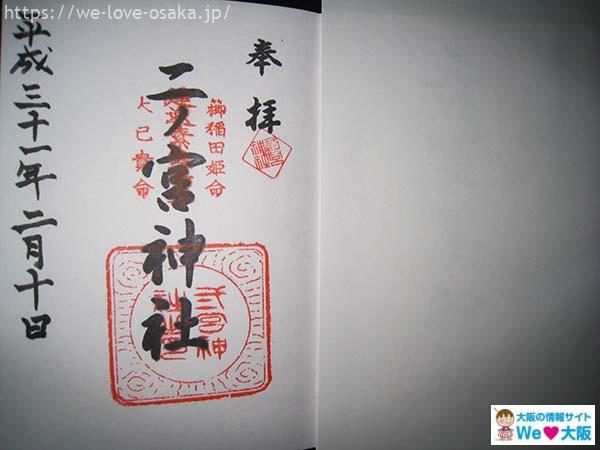 https://we-love-osaka.jp/
奉拝
櫛稲田姫命
二ノ宮神社
大己貴命
平成三十一年二月十日
大阪の情報サイト
We♥大阪